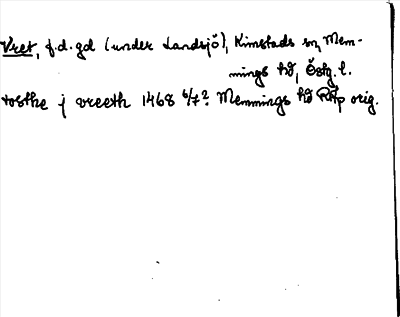 Vret, f.d. gd (under Landsjö), Kimstads sn, Mem-
mings hd, Östg. l.
tosthe j vreeth 1468 6/7? Memmings hd RAp orig.